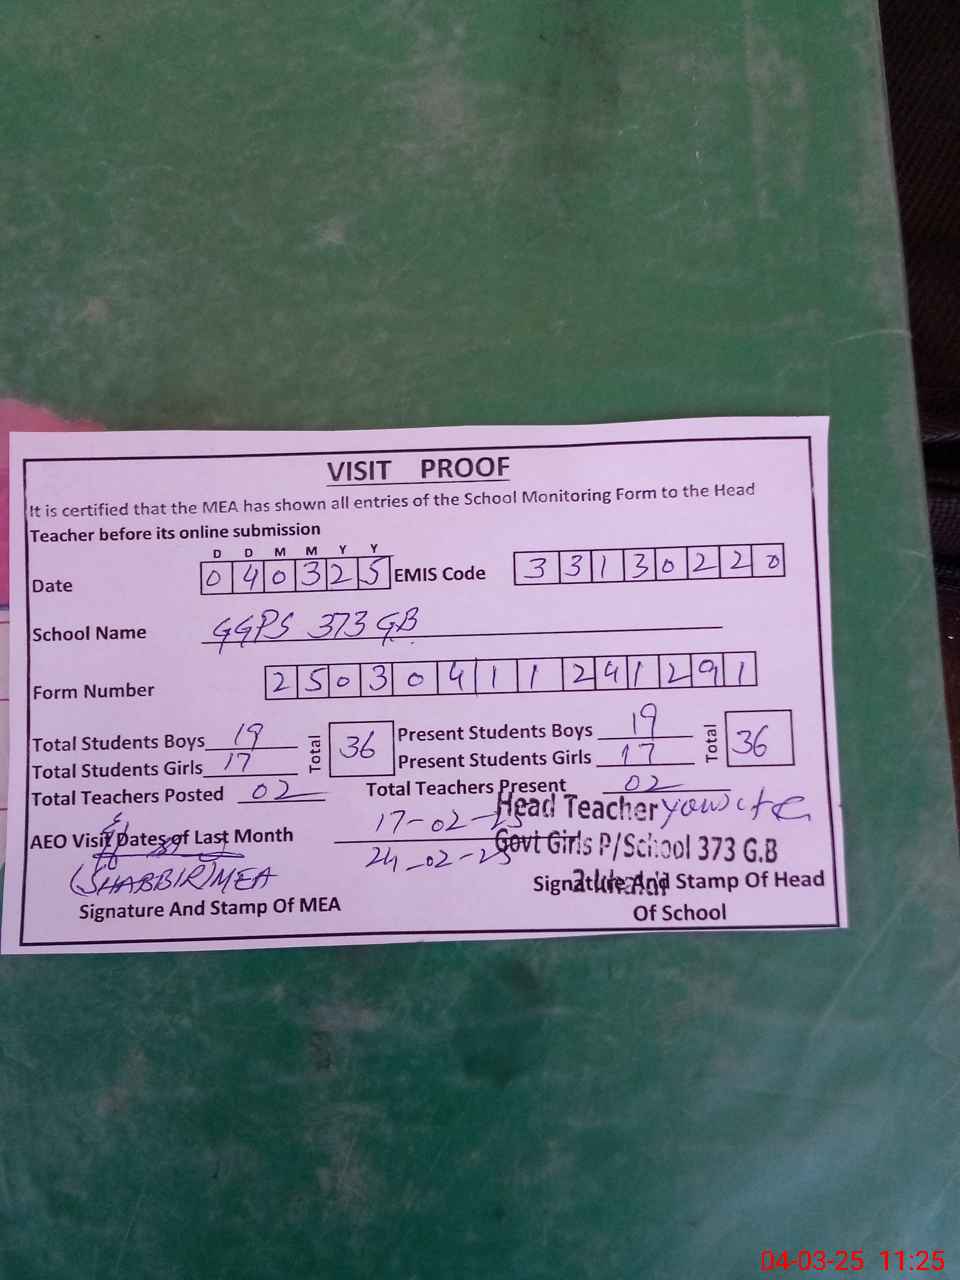 VISIT PROOF
It is certified that the MEA has shown all entries of the School Monitoring Form to the Head
Teacher before its online submission
D D M M Y Y
Date 0 4 0 3 2 5 EMIS Code 3 3 1 3 0 2 2 0
School Name GGPS 373 GB
Form Number 2 5 0 3 0 4 1 1 2 4 1 2 9 1
Total Students Boys 19 Total 36 Present Students Boys 19 Total 36
Total Students Girls 17 Present Students Girls 17
Total Teachers Posted 02 Total Teachers Present 02
Head Teacher
AEO Visit Dates of Last Month 17-02-25
Govt Girls P/School 373 G.B
24-02-25
(SHABBIR) MEA
Signature And Stamp Of MEA
Signature And Stamp Of Head
Of School
04-03-25 11:25